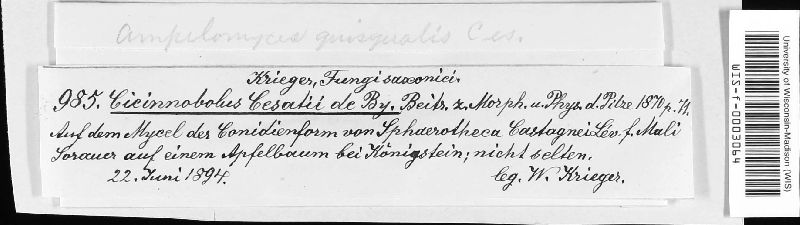 Ampelomyces quisqualis Ces.
Krieger, Fungi saxonici.
985. Cicinnobolus Cesatii de By. Beitr. z. Morph. u. Phys. d. Pilze 1870 p. 71.
Auf dem Mycel der Conidienform von Sphaerotheca Castagnei Lév. f. Mali
Sorauer auf einem Apfelbaum bei Königstein; nicht selten.
22. Juni 1894. lg. W. Krieger.
University of Wisconsin-Madison (WIS)
WIS-F-0003064